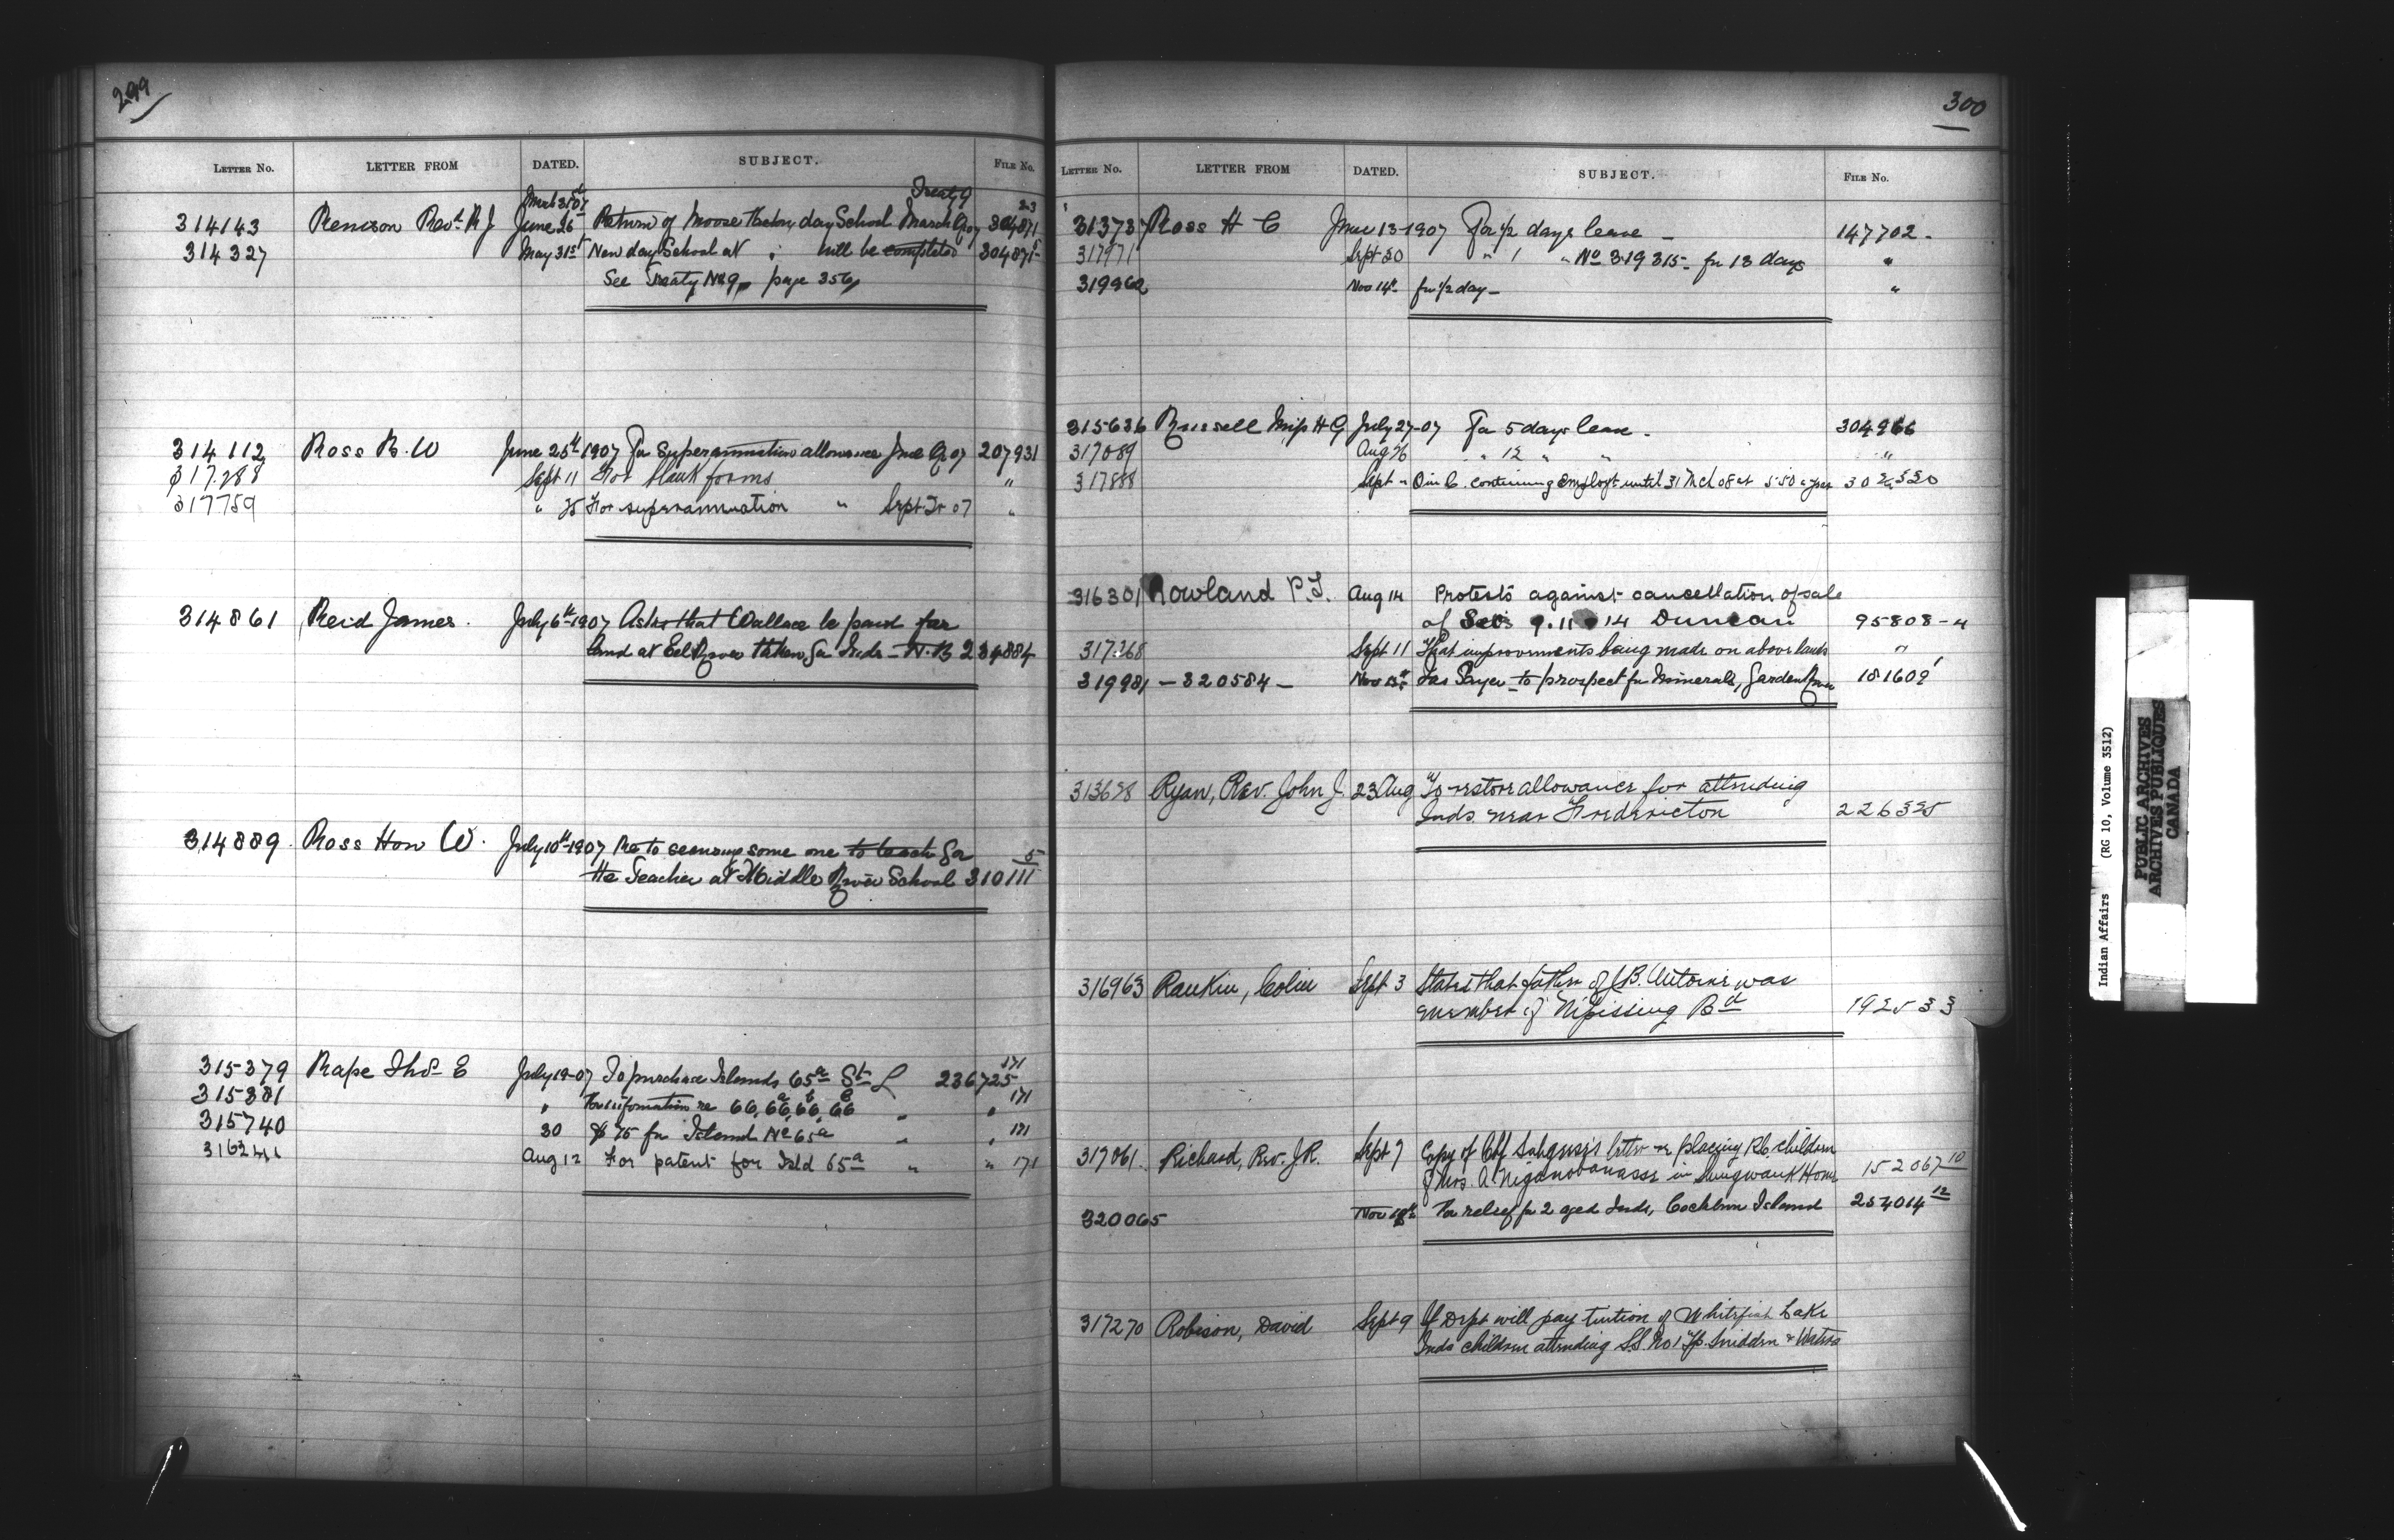 299
LETTER NO. LETTER FROM DATED. SUBJECT. FILE NO.
Treaty 9
314143 Renison Revd R J June 26 Return of Moose Factory day School March Q 07 304871
23
314327 May 31st New day School at " will be completed 304871
See Treaty No 9, page 356
314112 Ross R. W June 25th 1907 For Superannuation allowance June Q 07 207931
317288 Sept 11 For blank forms "
317759 " 25 For superannuation " Sept Qr 07 "
314861 Reid James. July 6th 1907 Asks that Wallace be paid for
land at Eel River taken for Inds - N.B 234884
314889. Ross Hon W. July 10th 1907 Re to securing some one to teach for
the Teacher at Middle River School 310111
5
315379 Rape Thos E July 19-07 To purchase Islands 65a St L 236725
171
315381 " For information re 66, 66a, 66b, 66c " " 171
315740 30 $75 for Island No 65a " " 171
316244 Aug 12 For patent for Isld 65a " " 171
300
LETTER NO. LETTER FROM DATED. SUBJECT. FILE NO.
313737 Ross H C June 13-1907 For 1/2 days leave - 147702 -
317971 Sept 30 " 1 " No 319315 - for 13 days "
319962 Nov 14th for 1/2 day - "
315636 Russell Miss H G July 27-07 For 5 days leave. 304966
317089 Aug 26 " 12 " " "
317888 Sept " O in C. continuing employt until 31 Mch 08 at 550 a year 302530
316301 Rowland P. T. Aug 14 Protests against cancellation of sale
of Secs 9. 11 14 Duncan 95808-4
317368 Sept 11 That improvements being made on above lands "
319981 - 320584 - Nov 13th Jas Sayer to prospect for Minerals, Garden River 181609
313698 Ryan, Rev. John J. 23 Aug To restore allowance for attending
Inds. near Fredericton 226325
316963 Rankin, Colin Sept 3 States that father of J.B. Antoine was
member of Nipissing Bd 192533
317061. Richard, Rev. J.R. Sept 7 Copy of Chf letter re placing R.C. children
of Mrs. A. in Shingwauk Home 152067 10
320065 Nov 18th For relief for 2 aged Inds, Cockburn Island 254014 12
317270 Robison, David Sept 9 If Dept will pay tuition of Whitefish Lake
Inds children attending S.S. No 1 Tp. Snider & Waters
Indian Affairs (RG 10, Volume 3512)
PUBLIC ARCHIVES
ARCHIVES PUBLIQUES
CANADA